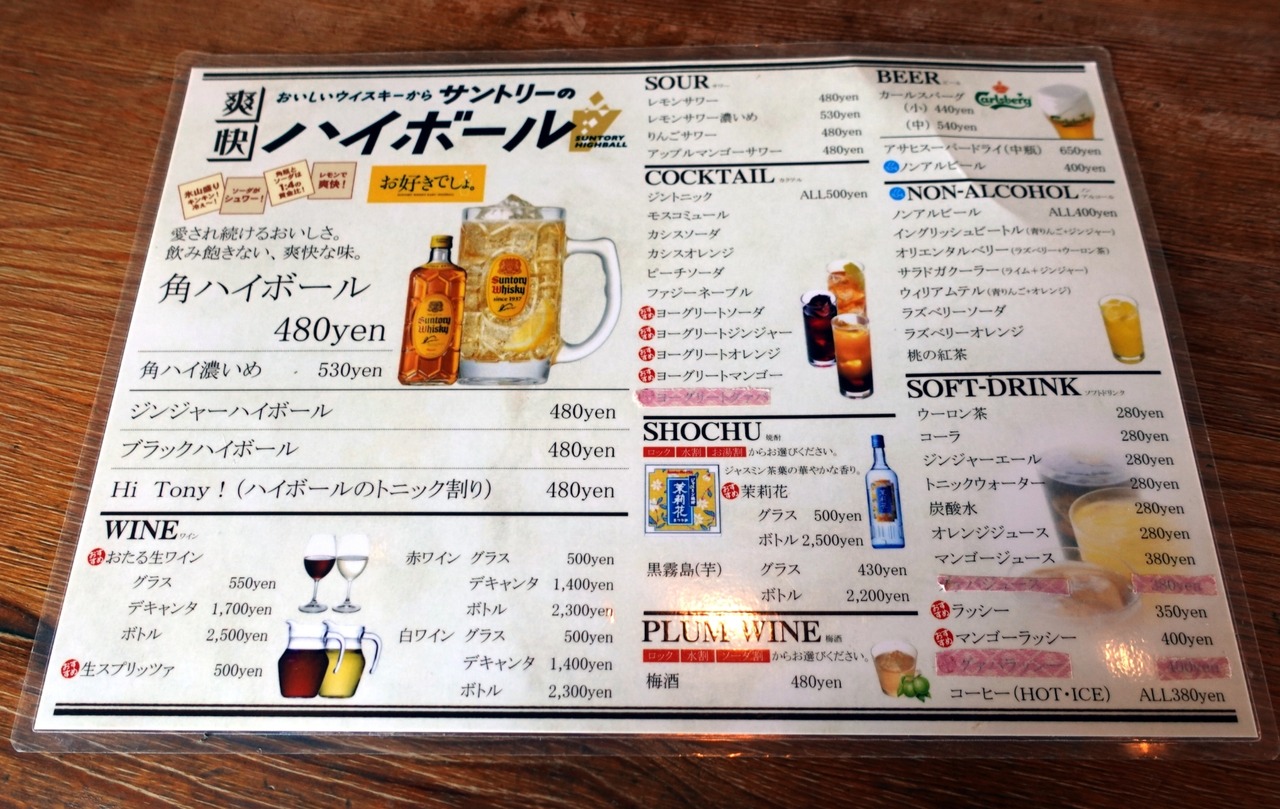 爽快
おいしいウイスキーから サントリーの
ハイボール
SUNTORY
HIGHBALL
氷山盛り
キンキン!
冷え〜!
ソーダが
シュワー!
角瓶と
ソーダは
1:4の
黄金比!
レモンで
爽快!
お好きでしょ。
愛され続けるおいしさ。
飲み飽きない、爽快な味。
角ハイボール
480yen
Suntory
Whisky
Suntory
Whisky
since 1937
角ハイ濃いめ 530yen
ジンジャーハイボール 480yen
ブラックハイボール 480yen
Hi Tony!(ハイボールのトニック割り) 480yen
WINE ワイン
おすすめ おたる生ワイン
グラス 550yen
デキャンタ 1,700yen
ボトル 2,500yen
おすすめ 生スプリッツァ 500yen
赤ワイン グラス 500yen
デキャンタ 1,400yen
ボトル 2,300yen
白ワイン グラス 500yen
デキャンタ 1,400yen
ボトル 2,300yen
SOUR サワー
レモンサワー 480yen
レモンサワー濃いめ 530yen
りんごサワー 480yen
アップルマンゴーサワー 480yen
COCKTAIL カクテル
ジントニック ALL500yen
モスコミュール
カシスソーダ
カシスオレンジ
ピーチソーダ
ファジーネーブル
おすすめ ヨーグリートソーダ
おすすめ ヨーグリートジンジャー
おすすめ ヨーグリートオレンジ
おすすめ ヨーグリートマンゴー
ヨーグリートグァバ
SHOCHU 焼酎
ロック 水割 お湯割 からお選びください。
ジャスミン茶葉の華やかな香り。
茉莉花
おすすめ 茉莉花
グラス 500yen
ボトル 2,500yen
黒霧島(芋) グラス 430yen
ボトル 2,200yen
PLUM WINE 梅酒
ロック 水割 ソーダ割 からお選びください。
梅酒 480yen
BEER ビール
カールスバーグ
Carlsberg
(小) 440yen
(中) 540yen
アサヒスーパードライ(中瓶) 650yen
ノンアルビール 400yen
NON-ALCOHOL ノンアルコール
ノンアルビール ALL400yen
イングリッシュビートル(青りんご+ジンジャー)
オリエンタルベリー(ラズベリー+ウーロン茶)
サラドガクーラー(ライム+ジンジャー)
ウィリアムテル(青りんご+オレンジ)
ラズベリーソーダ
ラズベリーオレンジ
桃の紅茶
SOFT-DRINK ソフトドリンク
ウーロン茶 280yen
コーラ 280yen
ジンジャーエール 280yen
トニックウォーター 280yen
炭酸水 280yen
オレンジジュース 280yen
マンゴージュース 380yen
グァバジュース 380yen
おすすめ ラッシー 350yen
おすすめ マンゴーラッシー 400yen
グァバラッシー 400yen
コーヒー(HOT・ICE) ALL380yen